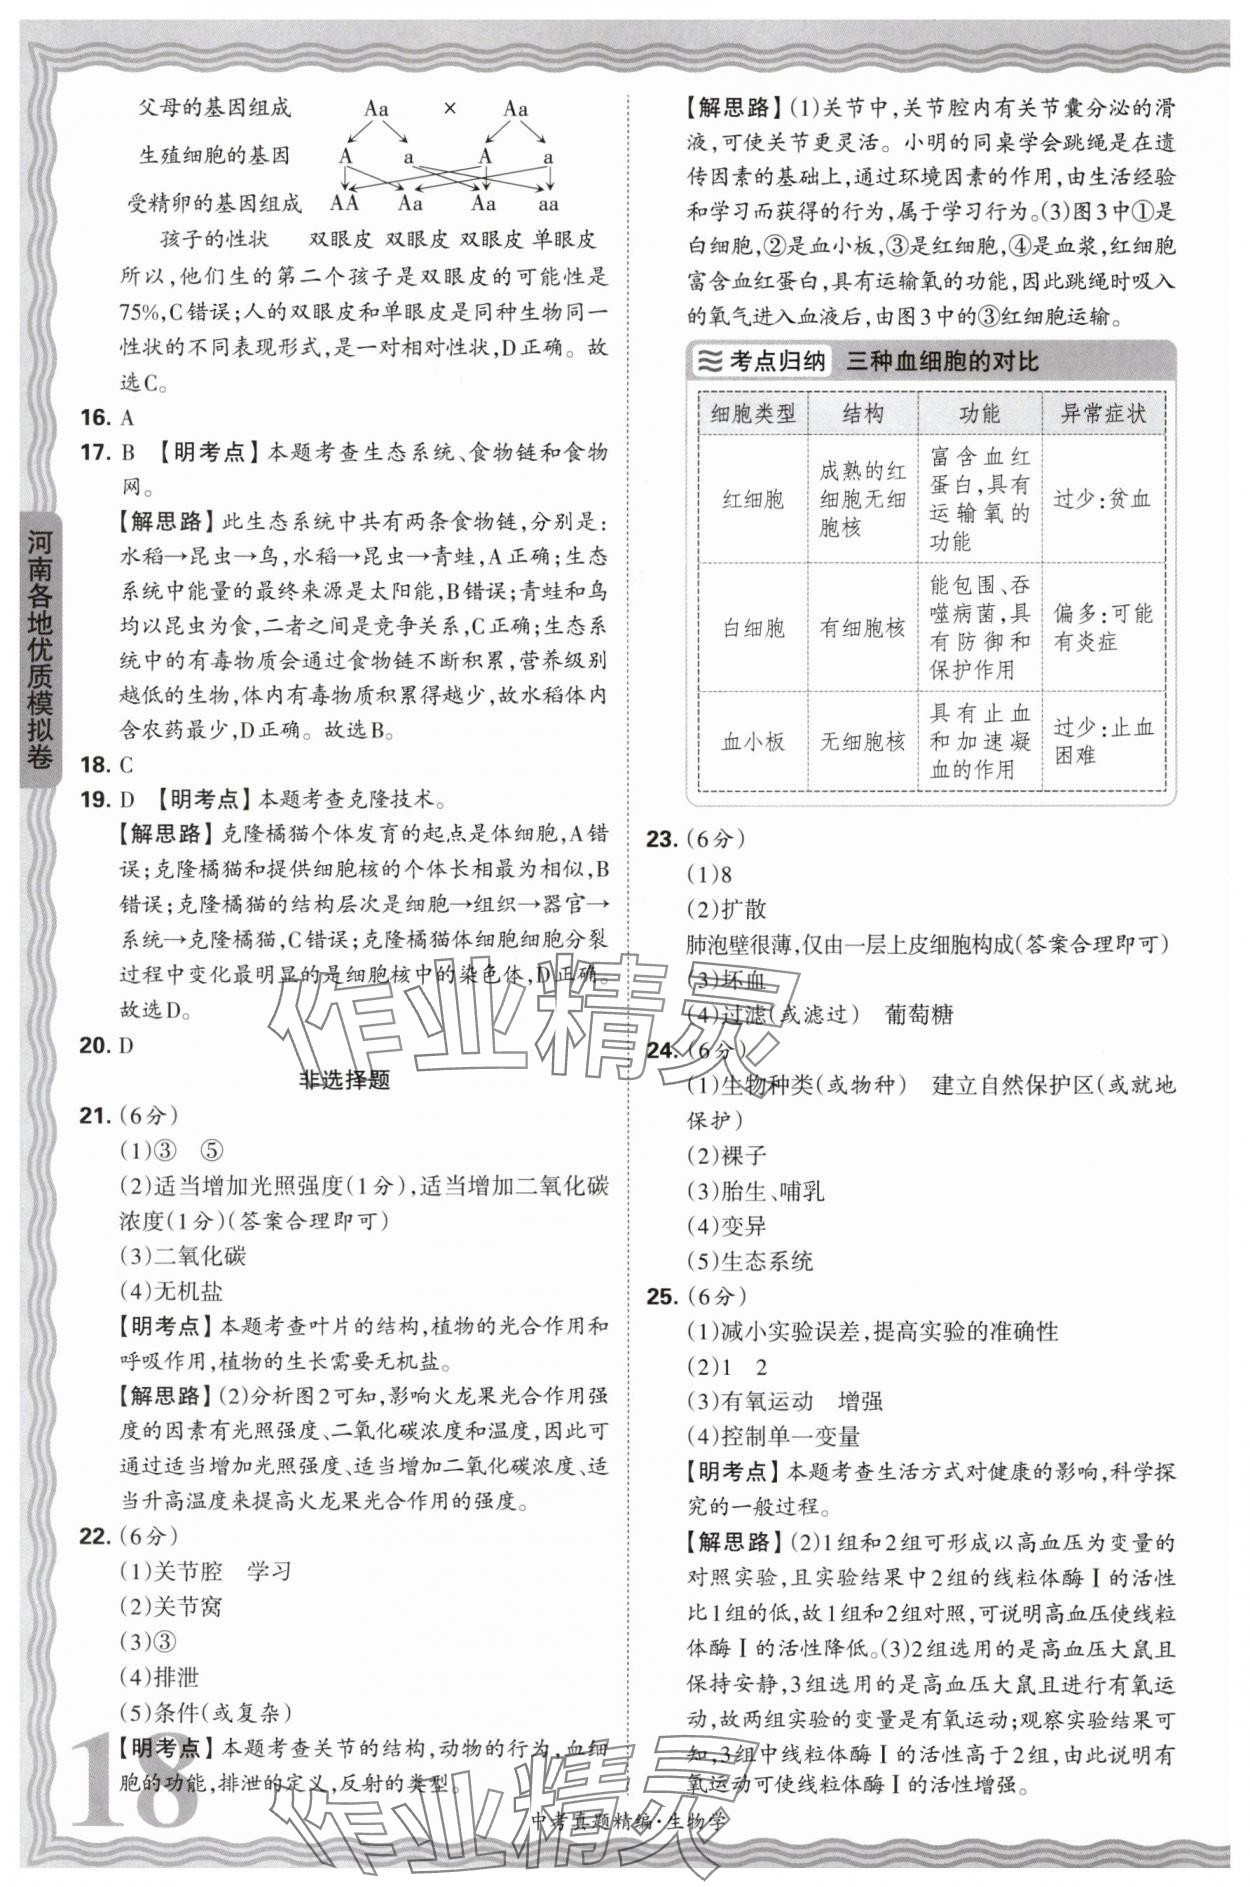 父母的基因组成 Aa × Aa
生殖细胞的基因 A a A a
受精卵的基因组成 AA Aa Aa aa
孩子的性状 双眼皮 双眼皮 双眼皮 单眼皮
所以,他们生的第二个孩子是双眼皮的可能性是
75%,C错误;人的双眼皮和单眼皮是同种生物同一
性状的不同表现形式,是一对相对性状,D正确。故
选C。
16. A
17. B 【明考点】本题考查生态系统、食物链和食物
网。
【解思路】此生态系统中共有两条食物链,分别是:
水稻→昆虫→鸟,水稻→昆虫→青蛙,A正确;生态
系统中能量的最终来源是太阳能,B错误;青蛙和鸟
均以昆虫为食,二者之间是竞争关系,C正确;生态系
统中的有毒物质会通过食物链不断积累,营养级别
越低的生物,体内有毒物质积累得越少,故水稻体内
含农药最少,D正确。故选B。
18. C
19. D 【明考点】本题考查克隆技术。
【解思路】克隆橘猫个体发育的起点是体细胞,A错
误;克隆橘猫和提供细胞核的个体长相最为相似,B
错误;克隆橘猫的结构层次是细胞→组织→器官→
系统→克隆橘猫,C错误;克隆橘猫体细胞细胞分裂
过程中变化最明显的是细胞核中的染色体,D正确。
故选D。
20. D
非选择题
21. (6分)
(1)③ ⑤
(2)适当增加光照强度(1分),适当增加二氧化碳
浓度(1分)(答案合理即可)
(3)二氧化碳
(4)无机盐
【明考点】本题考查叶片的结构,植物的光合作用和
呼吸作用,植物的生长需要无机盐。
【解思路】(2)分析图2可知,影响火龙果光合作用强
度的因素有光照强度、二氧化碳浓度和温度,因此可
通过适当增加光照强度、适当增加二氧化碳浓度、适
当升高温度来提高火龙果光合作用的强度。
22. (6分)
(1)关节腔 学习
(2)关节窝
(3)③
(4)排泄
(5)条件(或复杂)
【明考点】本题考查关节的结构,动物的行为,血细
胞的功能,排泄的定义,反射的类型。
【解思路】(1)关节中,关节腔内有关节囊分泌的滑
液,可使关节更灵活。小明的同桌学会跳绳是在遗
传因素的基础上,通过环境因素的作用,由生活经验
和学习而获得的行为,属于学习行为。(3)图3中①是
白细胞,②是血小板,③是红细胞,④是血浆,红细胞
富含血红蛋白,具有运输氧的功能,因此跳绳时吸入
的氧气进入血液后,由图3中的③红细胞运输。
考点归纳 三种血细胞的对比
细胞类型 结构 功能 异常症状
红细胞 成熟的红细胞无细胞核 富含血红蛋白,具有运输氧的功能 过少:贫血
白细胞 有细胞核 能包围、吞噬病菌,具有防御和保护作用 偏多:可能有炎症
血小板 无细胞核 具有止血和加速凝血的作用 过少:止血困难
23. (6分)
(1)8
(2)扩散
肺泡壁很薄,仅由一层上皮细胞构成(答案合理即可)
(3)坏血
(4)过滤(或滤过) 葡萄糖
24. (6分)
(1)生物种类(或物种) 建立自然保护区(或就地
保护)
(2)裸子
(3)胎生、哺乳
(4)变异
(5)生态系统
25. (6分)
(1)减小实验误差,提高实验的准确性
(2)1 2
(3)有氧运动 增强
(4)控制单一变量
【明考点】本题考查生活方式对健康的影响,科学探
究的一般过程。
【解思路】(2)1组和2组可形成以高血压为变量的
对照实验,且实验结果中2组的线粒体酶Ⅰ的活性
比1组的低,故1组和2组对照,可说明高血压使线粒
体酶Ⅰ的活性降低。(3)2组选用的是高血压大鼠且
保持安静,3组选用的是高血压大鼠且进行有氧运
动,故两组实验的变量是有氧运动;观察实验结果可
知,3组中线粒体酶Ⅰ的活性高于2组,由此说明有
氧运动可使线粒体酶Ⅰ的活性增强。
河南各地优质模拟卷
18
中考真题精编·生物学
作业精灵
作业精灵